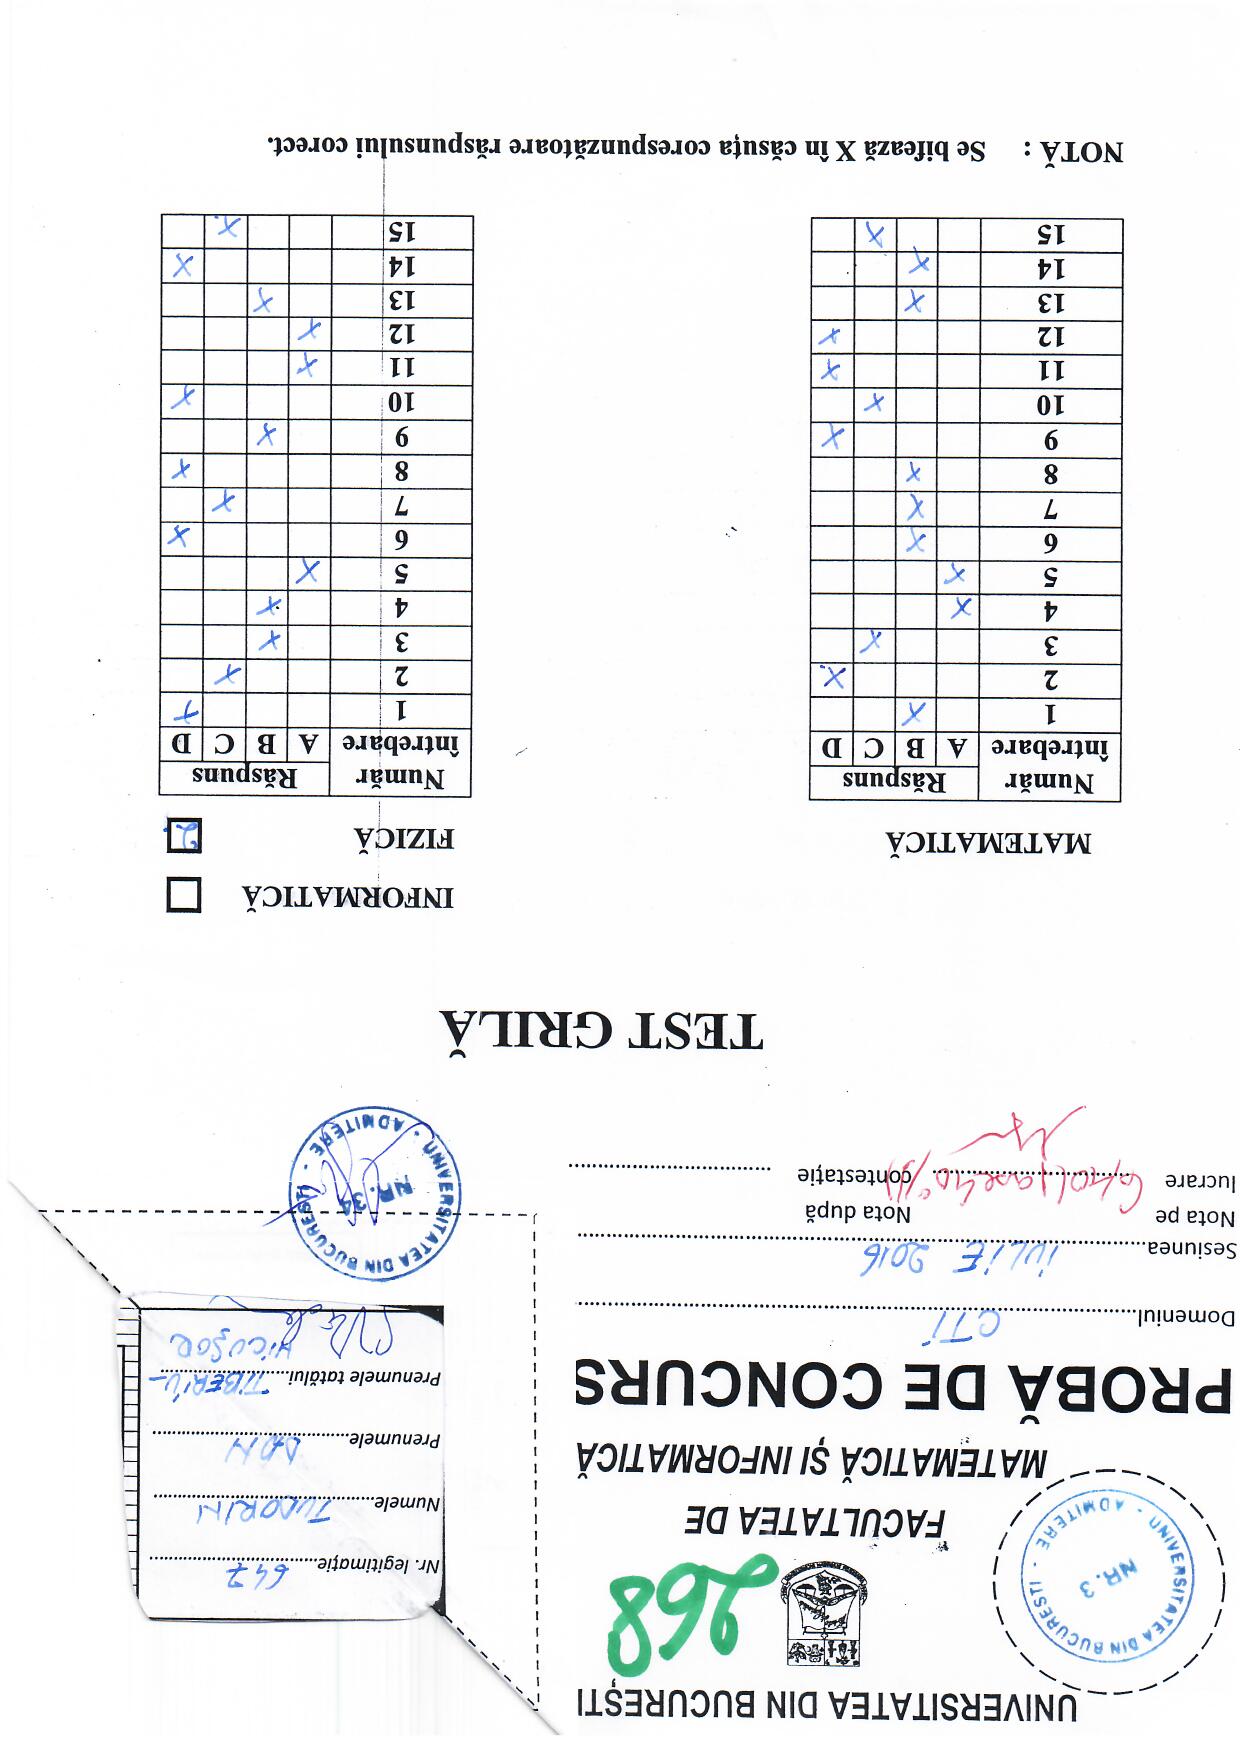 UNIVERSITATEA DIN BUCUREȘTI
268
FACULTATEA DE
MATEMATICĂ ȘI INFORMATICĂ
PROBĂ DE CONCURS
UNIVERSITATEA DIN BUCUREȘTI - ADMITERE -
NR. 3
Domeniul CTI
Sesiunea IULIE 2016
Nota pe lucrare
Nota după contestație
Nr. legitimație 647
Numele TUDORIN
Prenumele DAN
Prenumele tatălui TIBERIU-
NICUȘOR
UNIVERSITATEA DIN BUCUREȘTI - ADMITERE -
NR. 34
TEST GRILĂ
INFORMATICĂ
MATEMATICĂ
FIZICĂ 2
Număr întrebare Răspuns
A B C D
1 X
2 X
3 X
4 X
5 X
6 X
7 X
8 X
9 X
10 X
11 X
12 X
13 X
14 X
15 X
Număr întrebare Răspuns
A B C D
1 X
2 X
3 X
4 X
5 X
6 X
7 X
8 X
9 X
10 X
11 X
12 X
13 X
14 X
15 X
NOTĂ : Se bifează X în căsuța corespunzătoare răspunsului corect.